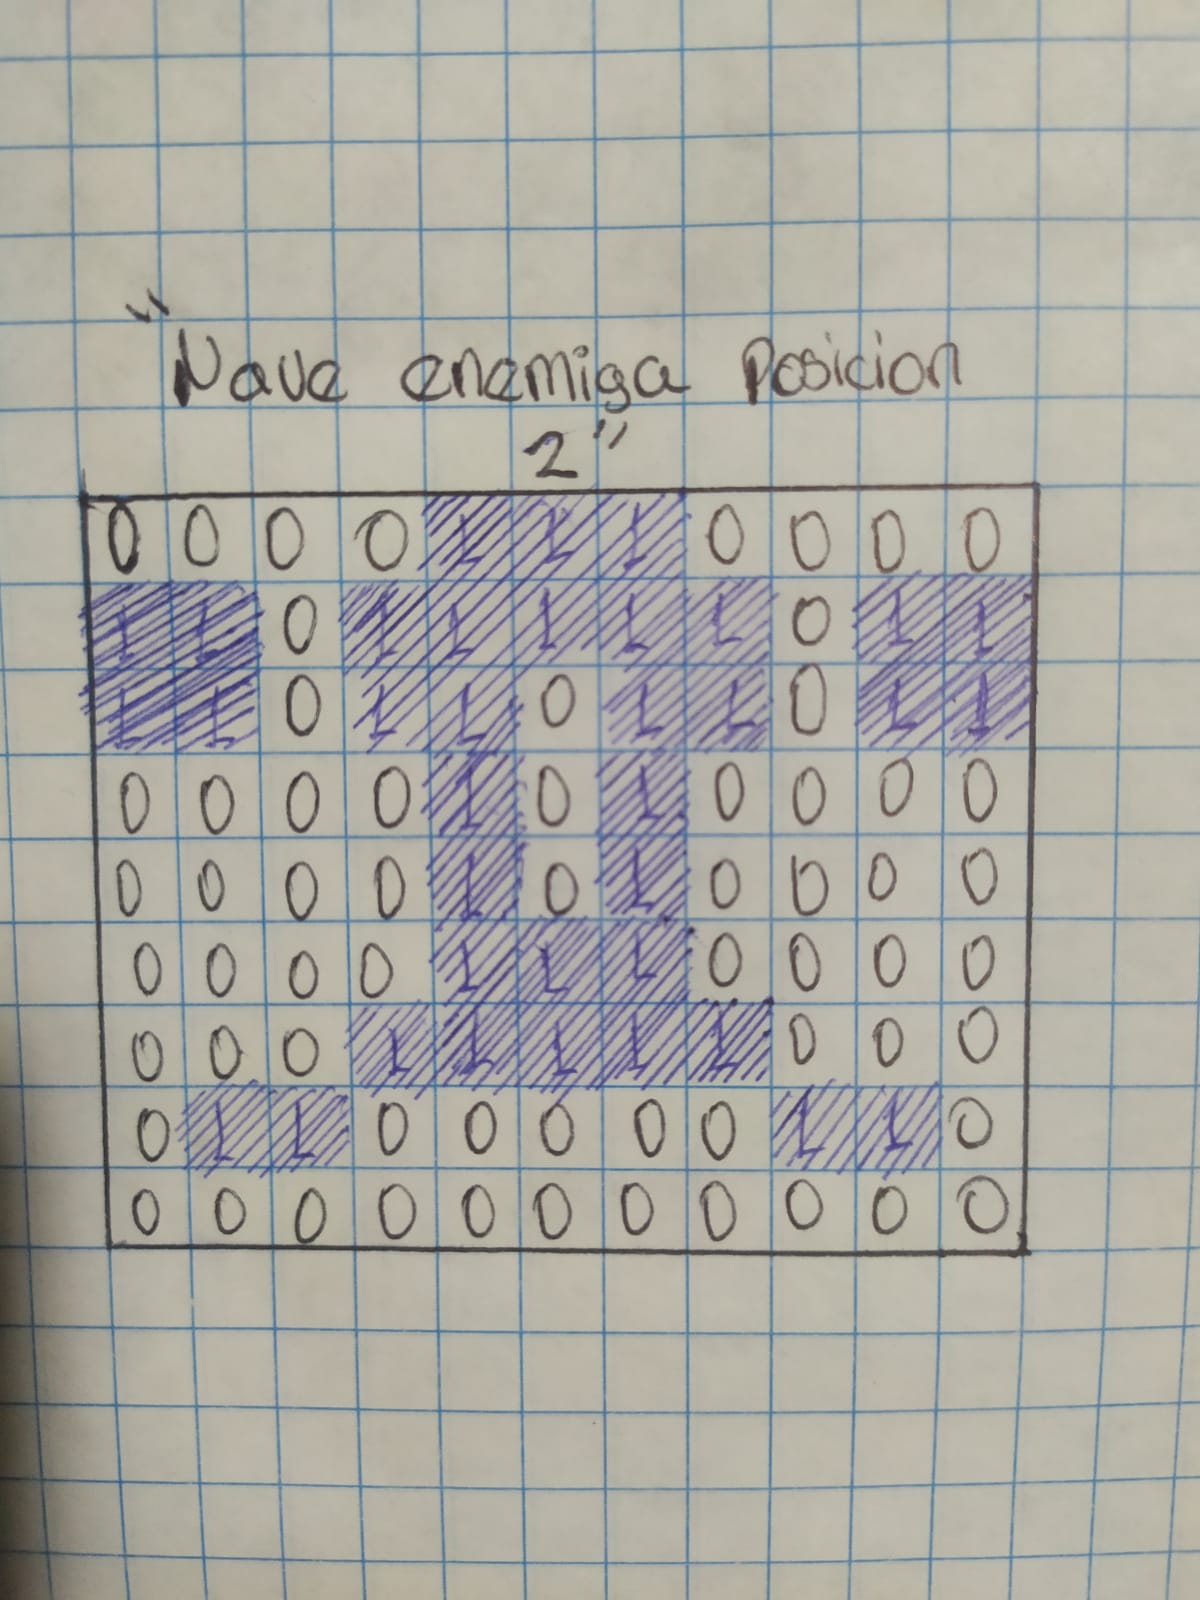 "Nave enemiga Posicion
2"
0 0 0 0 1 1 1 0 0 0 0
1 1 0 1 1 1 1 1 0 1 1
1 1 0 1 1 0 1 1 0 1 1
0 0 0 0 1 0 1 0 0 0 0
0 0 0 0 1 0 1 0 0 0 0
0 0 0 0 1 1 1 0 0 0 0
0 0 0 1 1 1 1 1 0 0 0
0 1 1 0 0 0 0 0 1 1 0
0 0 0 0 0 0 0 0 0 0 0